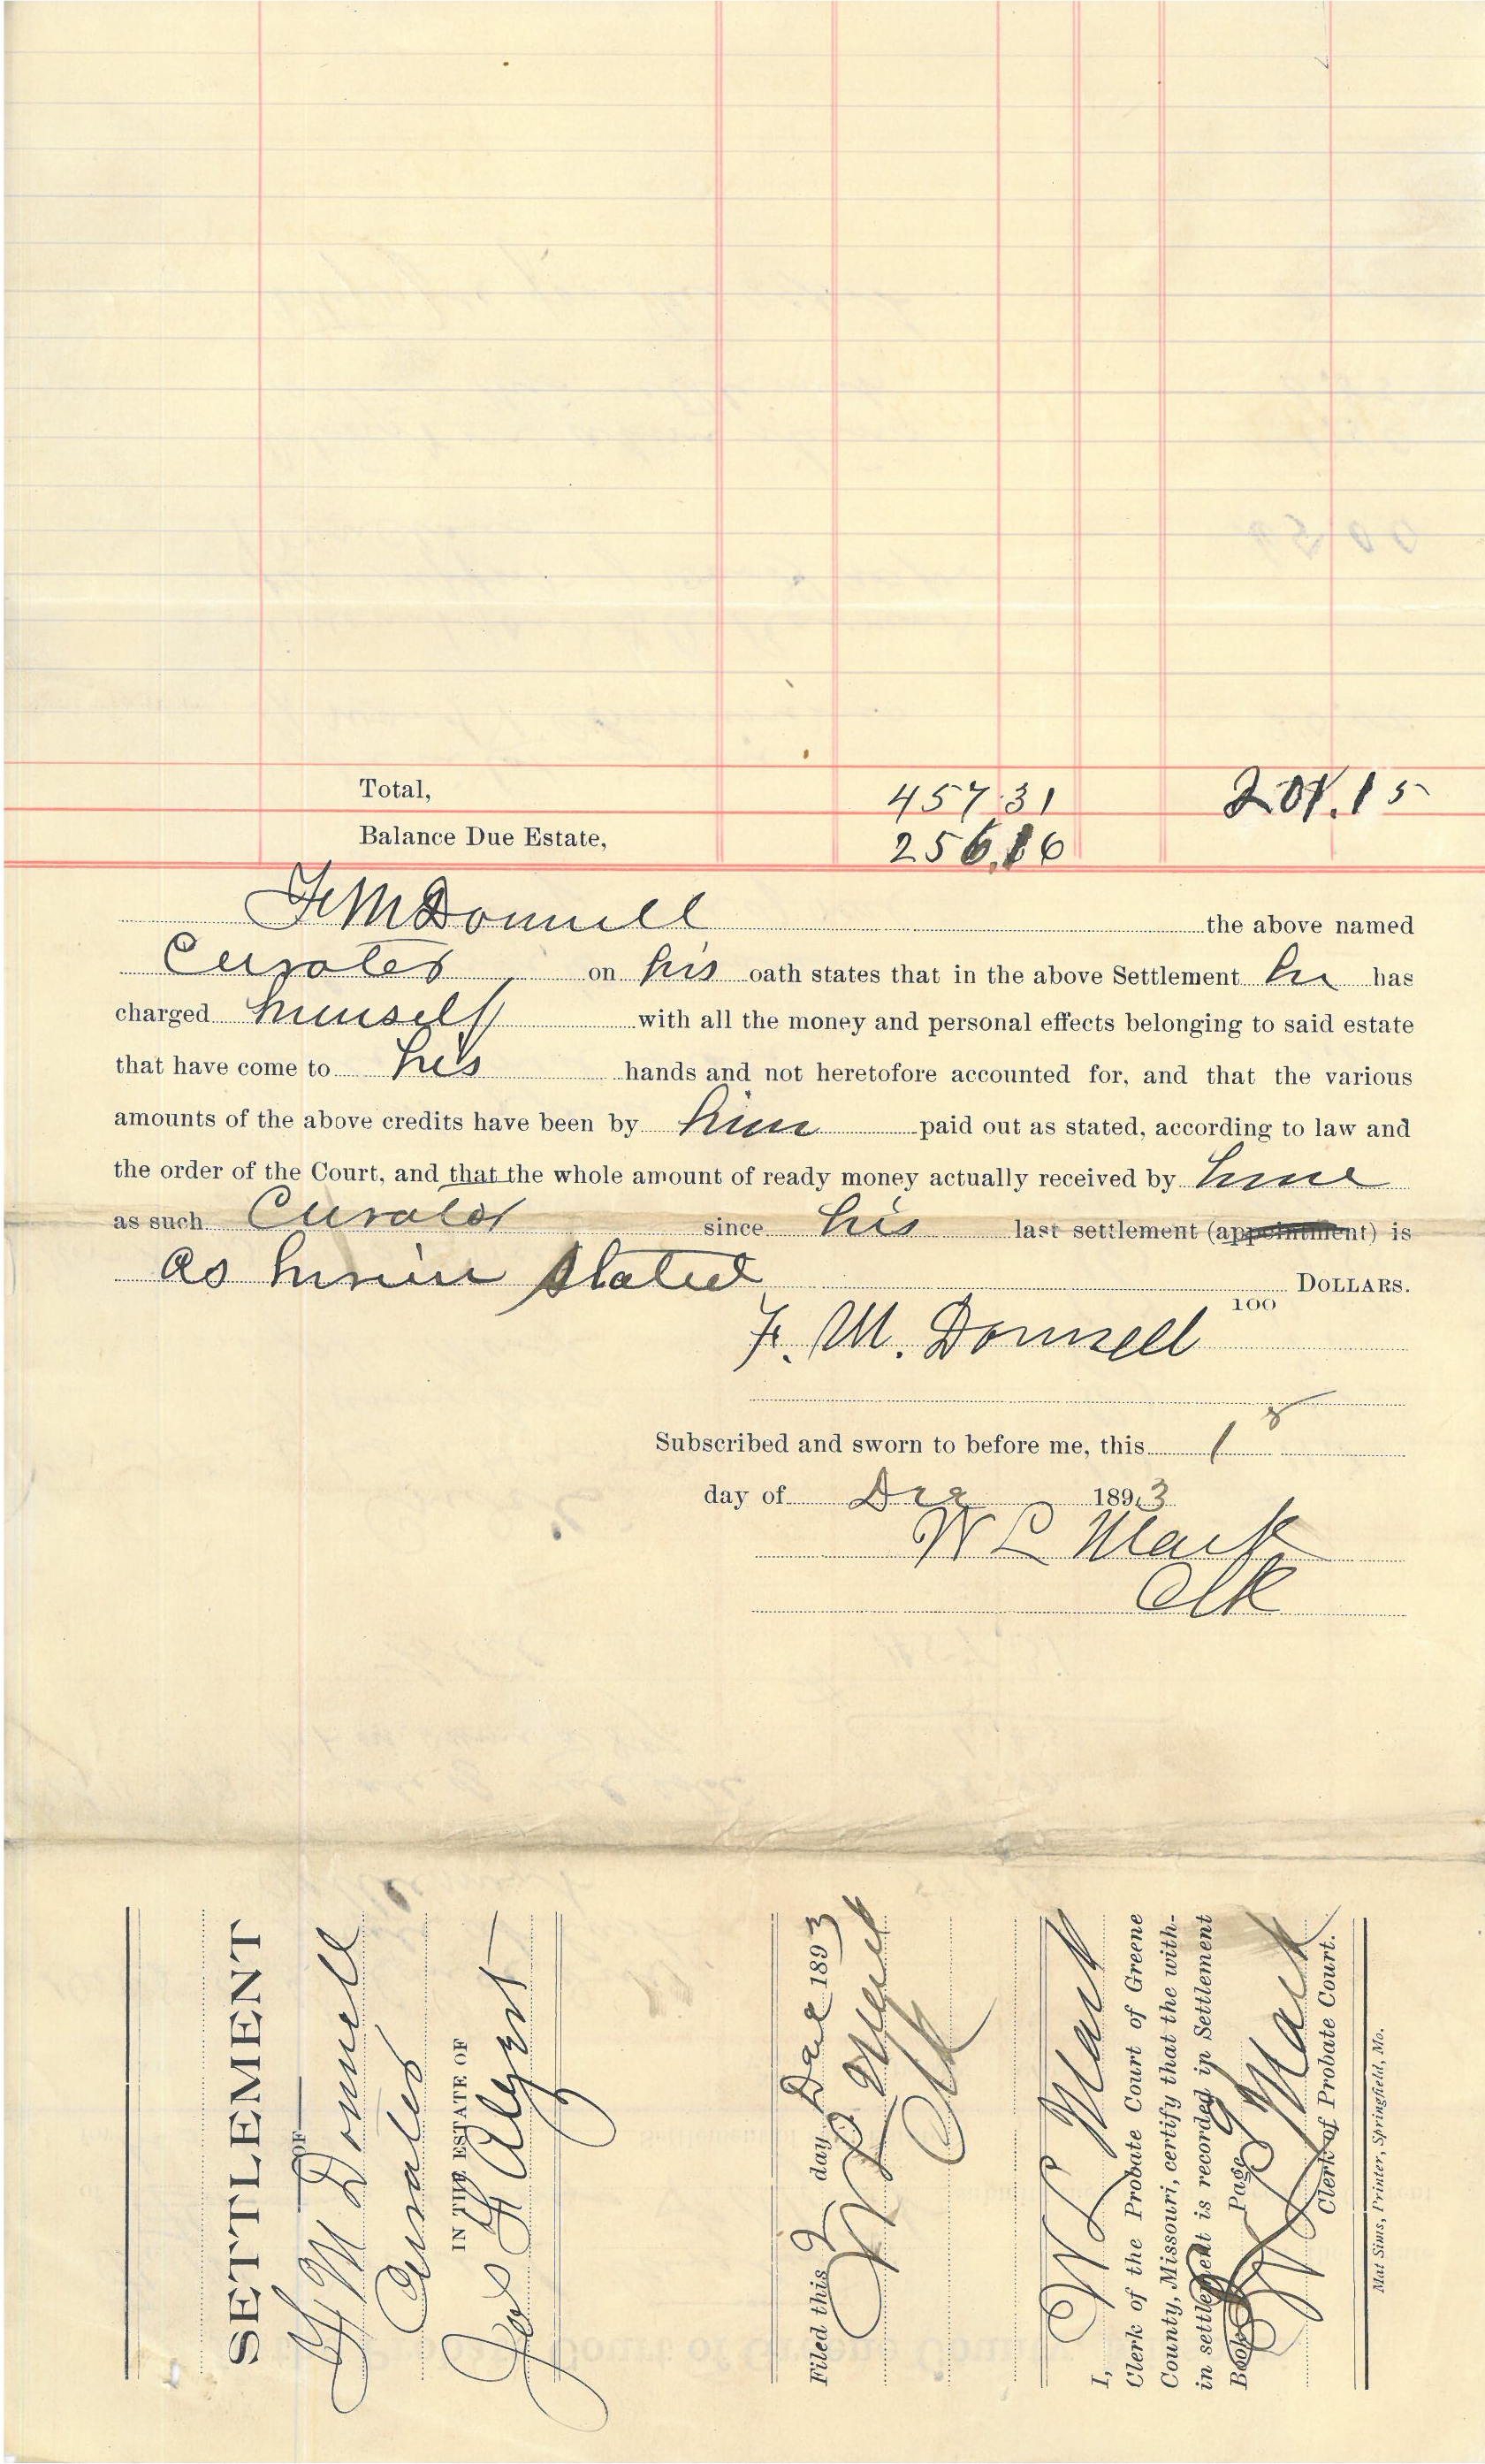 Total, 457.31 201.15
Balance Due Estate, 256.16
F M Donnell the above named
Curator on his oath states that in the above Settlement he has
charged himself with all the money and personal effects belonging to said estate
that have come to his hands and not heretofore accounted for, and that the various
amounts of the above credits have been by him paid out as stated, according to law and
the order of the Court, and that the whole amount of ready money actually received by him
as such Curator since his last settlement (appointment) is
as herein stated DOLLARS.
100
F. M. Donnell
Subscribed and sworn to before me, this 1
day of Dec 1893
W L Mack
Clk
SETTLEMENT
OF
F M Donnell
Curator
IN THE ESTATE OF
Filed this 2 day Dec 1893
W L Mack
Clk
I, W L Mack
Clerk of the Probate Court of Greene
County, Missouri, certify that the with-
in settlement is recorded in Settlement
Book Page
W L Mack
Clerk of Probate Court.
Mat Sims, Printer, Springfield, Mo.